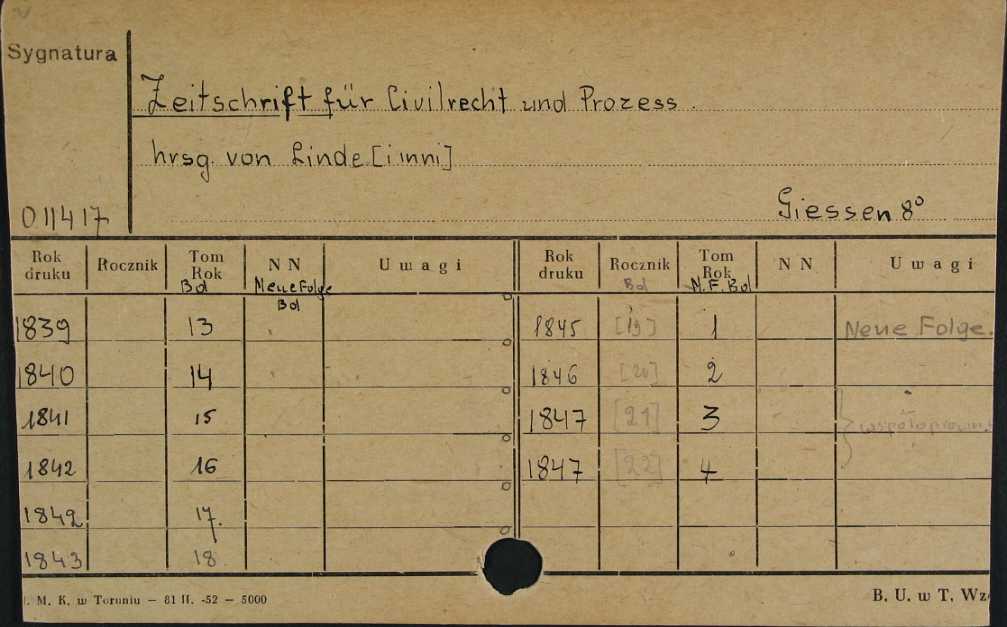 Sygnatura
Zeitschrift für Civilrecht und Prozess.
hrsg. von Linde [i inni]
011417
Giessen 8°
Rok druku Rocznik Tom Rok Bd N N Neue Folge Bd Uwagi Rok druku Rocznik Bd Tom Rok N.F. Bd N N Uwagi
1839 13 1845 [19] 1 Neue Folge.
1840 14 1846 [20] 2
1841 15 1847 [21] 3 współopraw.
1842 16 1847 [22] 4
1842 17.
1843 18
M. K. w Toruniu — 81 II. -52 — 5000
B. U. w T. Wz